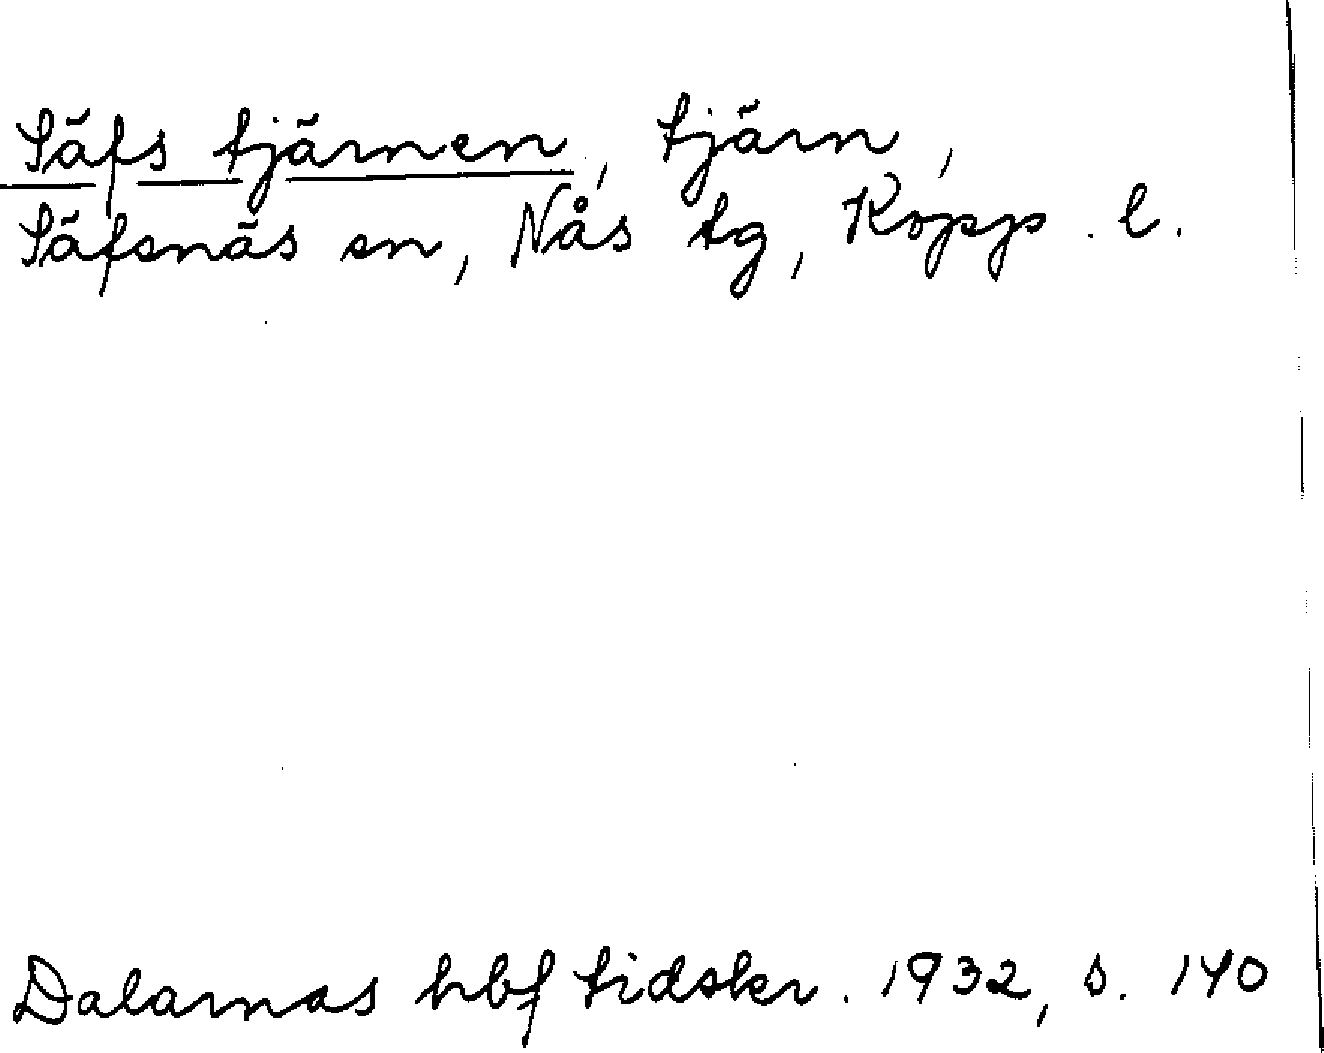 Säfs tjärnen, tjärn,
Säfsnäs sn, Nås tg, Kopp. l.
Dalarnas hbf tidskr. 1932, s. 140